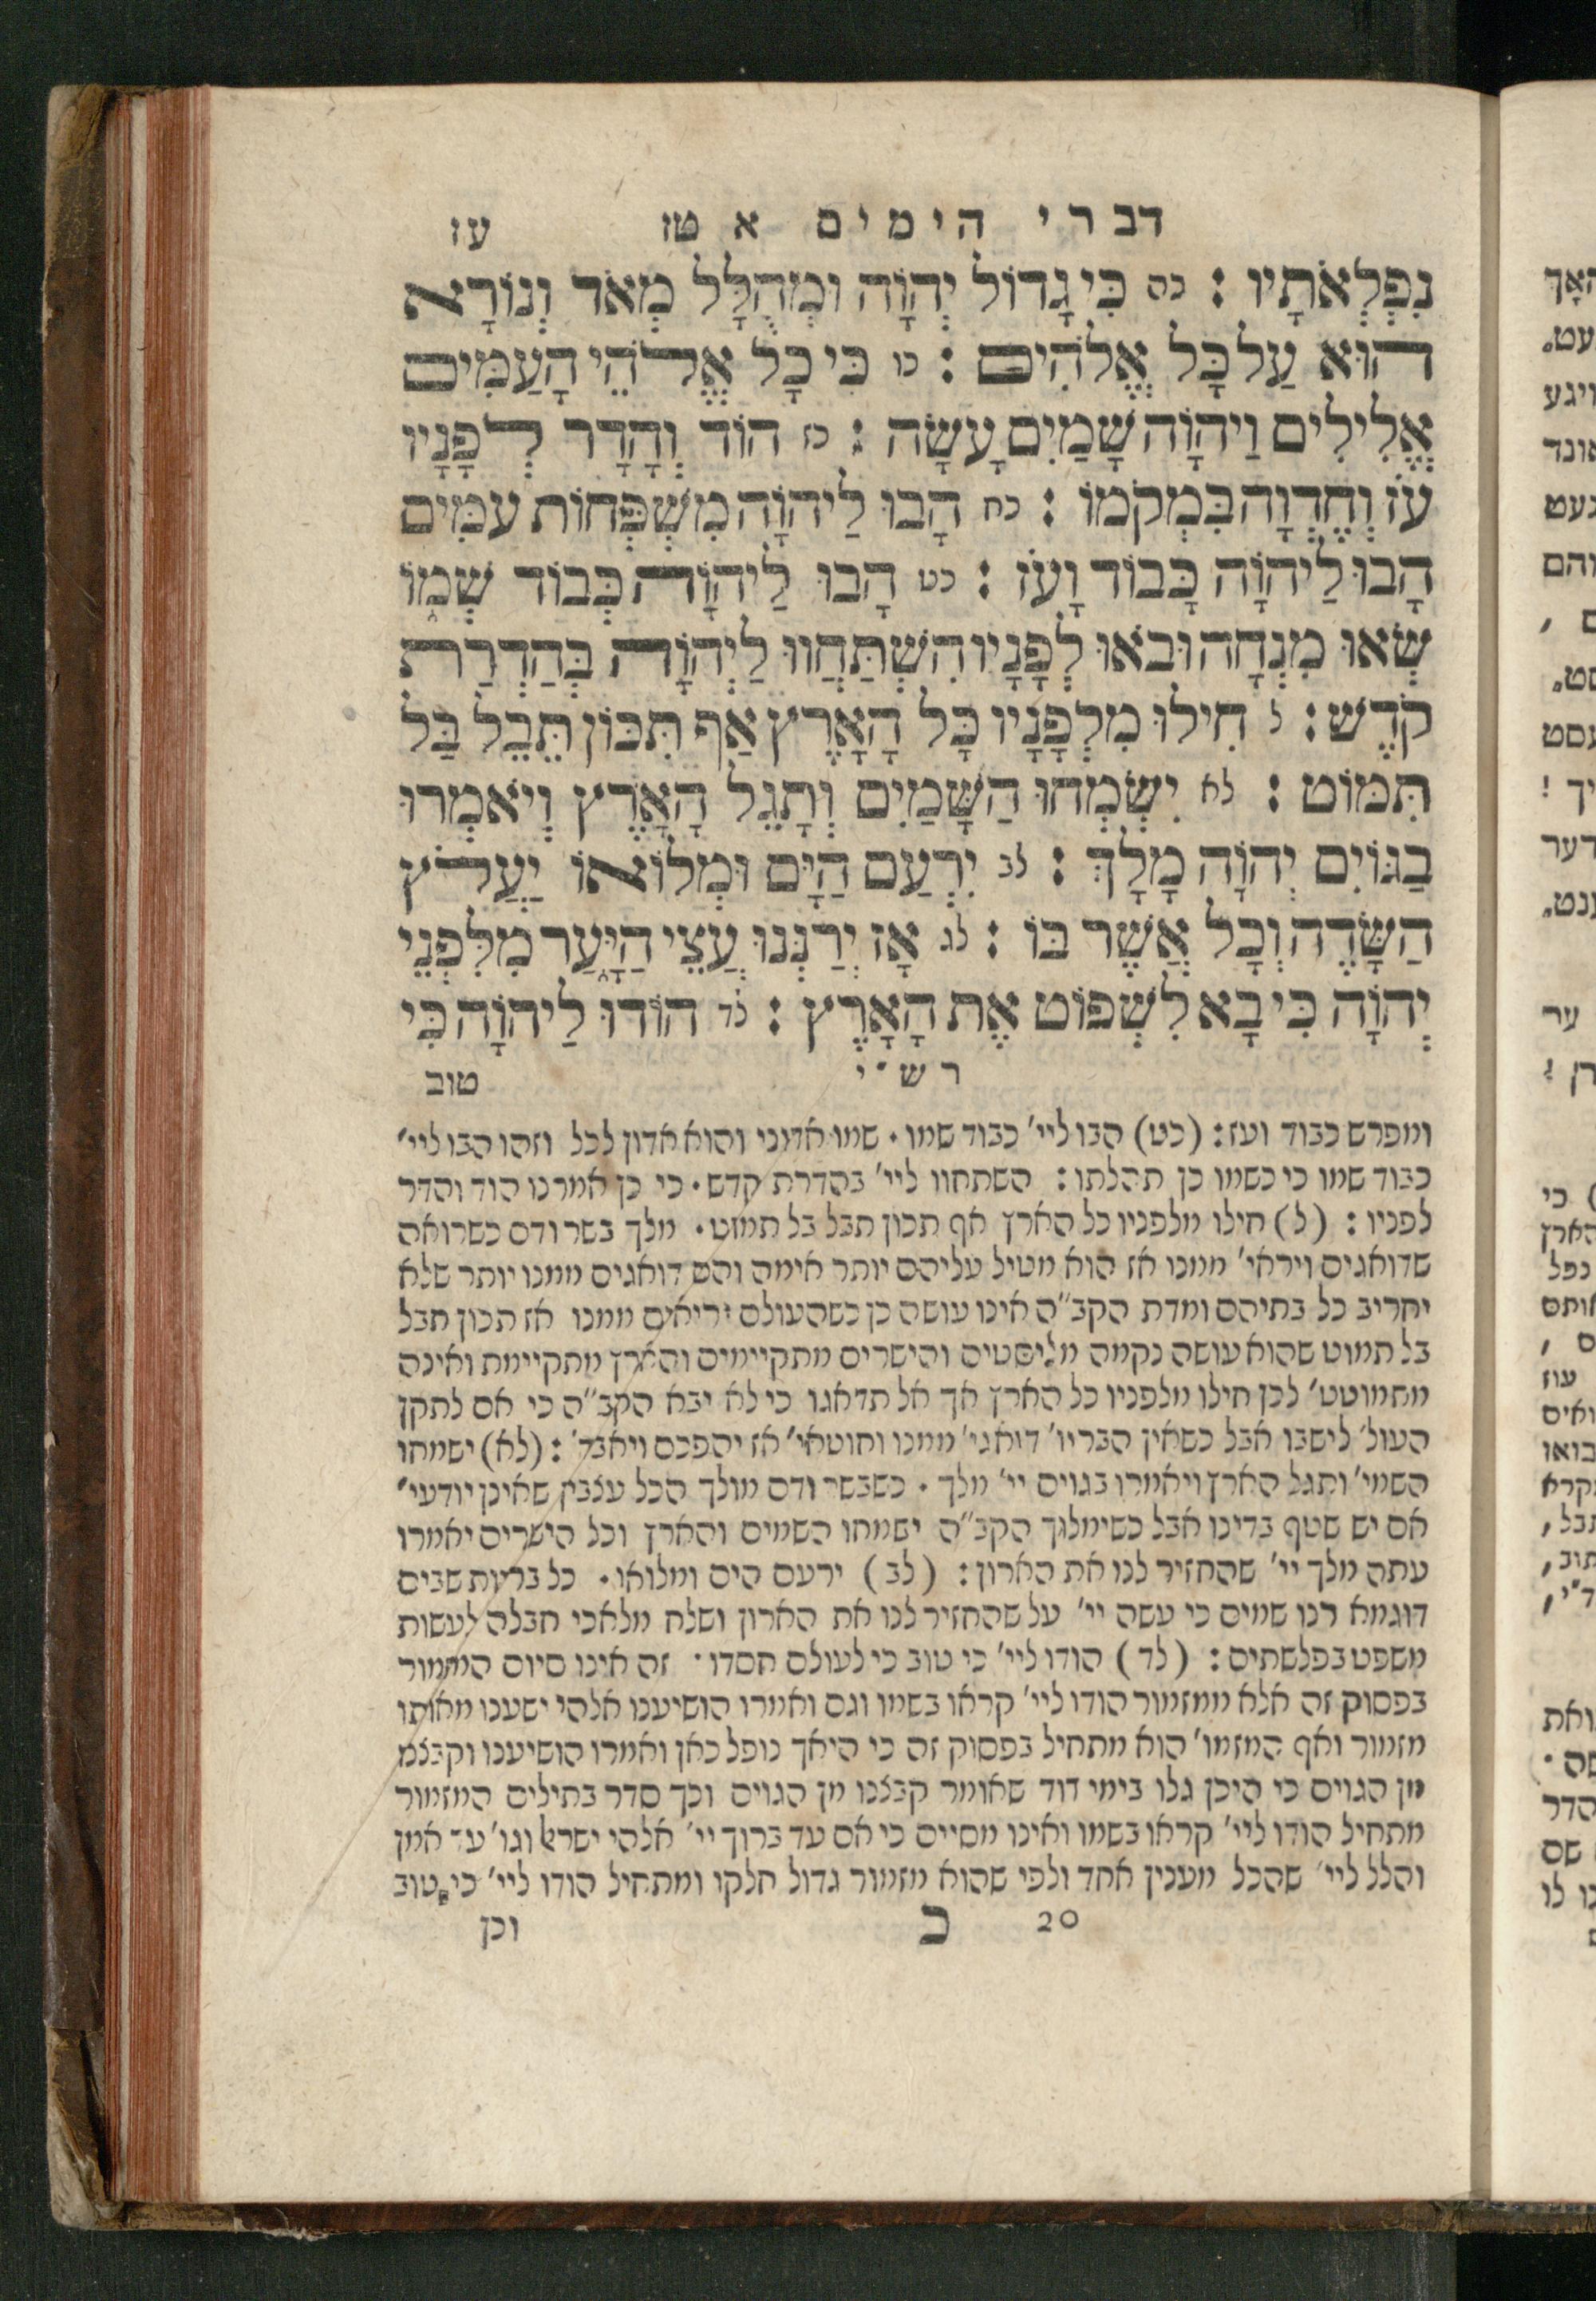 דברי הימים א טז עז
נִפְלְאֹתָיו : כה כִּי גָדוֹל יְהוָֹה וּמְהֻלָּל מְאֹד וְנוֹרָא
הוּא עַל כָּל אֱלֹהִים : כו כִּי כָל אֱלֹהֵי הָעַמִּים
אֱלִילִים וַיהוָֹה שָׁמַיִם עָשָׂה : כז הוֹד וְהָדָר לְפָנָיו
עֹז וְחֶדְוָה בִּמְקֹמוֹ : כח הָבוּ לַיהוָֹה מִשְׁפְּחוֹת עַמִּים
הָבוּ לַיהוָֹה כָּבוֹד וָעֹז : כט הָבוּ לַיהוָֹה כְּבוֹד שְׁמוֹ
שְׂאוּ מִנְחָה וּבֹאוּ לְפָנָיו הִשְׁתַּחֲווּ לַיְהוָֹה בְּהַדְרַת
קֹדֶשׁ : ל חִילוּ מִלְּפָנָיו כָּל הָאָרֶץ אַף תִּכּוֹן תֵּבֵל בַּל
תִּמּוֹט : לא יִשְׂמְחוּ הַשָּׁמַיִם וְתָגֵל הָאָרֶץ וְיֹאמְרוּ
בַגּוֹיִם יְהוָֹה מָלָךְ : לב יִרְעַם הַיָּם וּמְלוֹאוֹ יַעֲלֹץ
הַשָּׂדֶה וְכָל אֲשֶׁר בּוֹ : לג אָז יְרַנְּנוּ עֲצֵי הַיָּעַר מִלִּפְנֵי
יְהוָֹה כִּי בָא לִשְׁפּוֹט אֶת הָאָרֶץ : לד הוֹדוּ לַיהוָֹה כִּי
רש"י טוב
ומפרש כבוד ועז : (כט) הבו ליי' כבוד שמו . שמו אדוני והוא אדון לכל וזהו הבו ליי'
כבוד שמו כי כשמו כן תהלתו : השתחוו ליי' בהדרת קדש . כי כן אמרנו הוד והדר
לפניו : (ל) חילו מלפניו כל הארץ אף תכון תבל בל תמוט . מלך בשר ודם כשרואה
שדואגים ויראי' ממנו אז הוא מטיל עליהם יותר אימה והם דואגים ממנו יותר שלא
יחריב כל בתיהם ומדת הקב"ה אינו עושה כן כשהעולם יריאים ממנו אז תכון תבל
בל תמוט שהוא עושה נקמה מליסטים והישרים מתקיימים והארץ מתקיימת ואינה
מתמוטט' לכן חילו מלפניו כל הארץ אך אל תדאגו כי לא יבא הקב"ה כי אם לתקן
העול' לישבו אבל כשאין הבריו' דואגי' ממנו וחוטאי' אז יהפכם ויאבד' : (לא) ישמחו
השמי' ותגל הארץ ויאמרו בגוים יי' מלך . כשבשר ודם מולך הכל עצבין שאינן יודעי'
אם יש שטף בדינו אבל כשימלוך הקב"ה ישמחו השמים והארץ וכל הישרים יאמרו
עתה מלך יי' שהחזיר לנו את הארון : (לב) ירעם הים ומלואו . כל בריות שבים
דוגמא רנו שמים כי עשה יי' על שהחזיר לנו את הארון ושלח מלאכי חבלה לעשות
משפט בפלשתים : (לד) הודו ליי' כי טוב כי לעולם חסדו . זה אינו סיום המזמור
בפסוק זה אלא ממזמור הודו ליי' קראו בשמו וגם ואמרו הושיענו אלהי ישענו מאותו
מזמור ואף המזמו' הוא מתחיל בפסוק זה כי היאך נופל כאן ואמרו הושיענו וקבצנו
מן הגוים כי היכן גלו בימי דוד שאומר קבצנו מן הגוים וכך סדר בתילים המזמור
מתחיל הודו ליי' קראו בשמו ואינו מסיים כי אם עד ברוך יי' אלהי ישראל וגו' עד אמן
והלל ליי' שהכל מענין אחד ולפי שהוא מזמור גדול חלקו ומתחיל הודו ליי' כי טוב
20 כ וכן